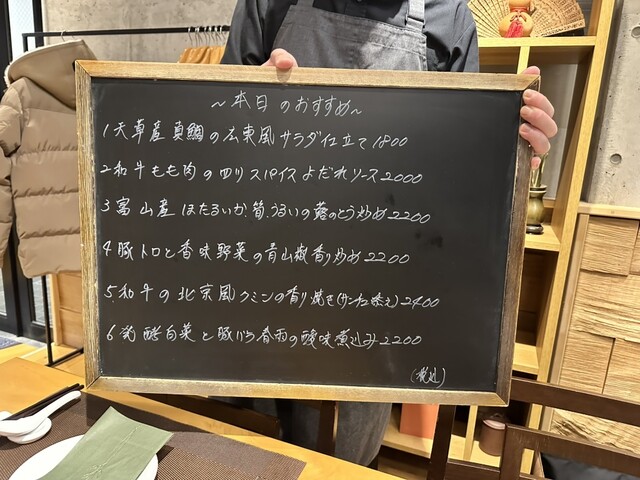 ~本日のおすすめ~
1 天草産真鯛の広東風サラダ仕立て 1800
2 和牛もも肉の四川スパイスよだれソース 2000
3 富山産ほたるいか、筍、うるいの蕗のとう炒め 2200
4 豚トロと香味野菜の青山椒香り炒め 2200
5 和牛の北京風クミンの香り焼き(サンチュ添え) 2400
6 発酵白菜と豚バラ春雨の酸味煮込み 2200
(税込)